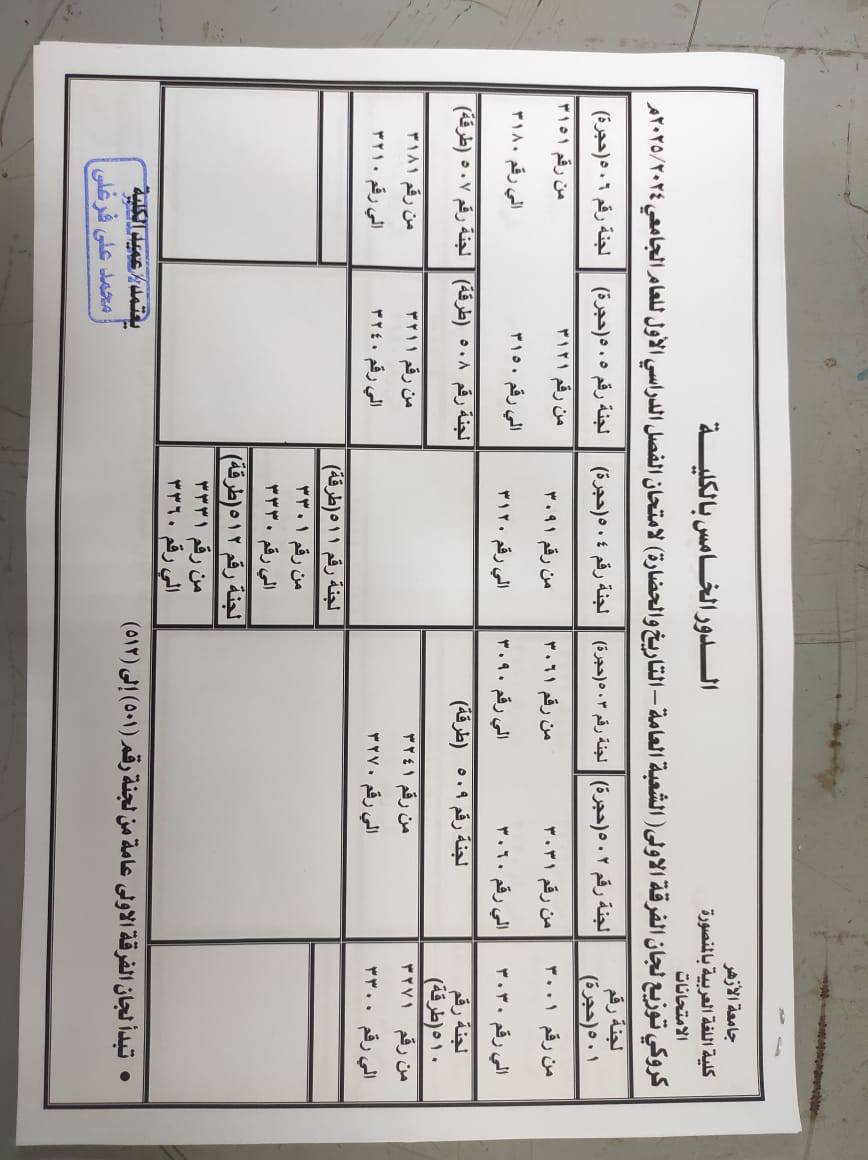 جامعة الأزهر
كلية اللغة العربية بالمنصورة
الامتحانات
الـــدور الخـــامس بالكليـــة
كروكي توزيع لجان الفرقة الاولى ( الشعبة العامة – التاريخ والحضارة) لامتحان الفصل الدراسي الأول للعام الجامعي ٢٠٢٥/٢٠٢٤م
لجنة رقم ٥٠١(حجرة)
من رقم ٣٠٠١
الي رقم ٣٠٣٠
لجنة رقم ٥٠٢(حجرة)
من رقم ٣٠٣١
الي رقم ٣٠٦٠
لجنة رقم ٥٠٣(حجرة)
من رقم ٣٠٦١
الي رقم ٣٠٩٠
لجنة رقم ٥٠٤(حجرة)
من رقم ٣٠٩١
الي رقم ٣١٢٠
لجنة رقم ٥٠٥(حجرة)
من رقم ٣١٢١
الي رقم ٣١٥٠
لجنة رقم ٥٠٦(حجرة)
من رقم ٣١٥١
الي رقم ٣١٨٠
لجنة رقم ٥١٠(طرقة)
من رقم ٣٢٧١
الي رقم ٣٣٠٠
لجنة رقم ٥٠٩ (طرقة)
من رقم ٣٢٤١
الي رقم ٣٢٧٠
لجنة رقم ٥٠٨ (طرقة)
من رقم ٣٢١١
الي رقم ٣٢٤٠
لجنة رقم ٥٠٧ (طرقة)
من رقم ٣١٨١
الي رقم ٣٢١٠
لجنة رقم ٥١١(طرقة)
من رقم ٣٣٠١
الي رقم ٣٣٣٠
لجنة رقم ٥١٢(طرقة)
من رقم ٣٣٣١
الي رقم ٣٣٦٠
• تبدأ لجان الفرقة الاولى عامة من لجنة رقم (٥٠١) إلى (٥١٢)
يعتمد/ عميد الكلية
محمد على فرغلى